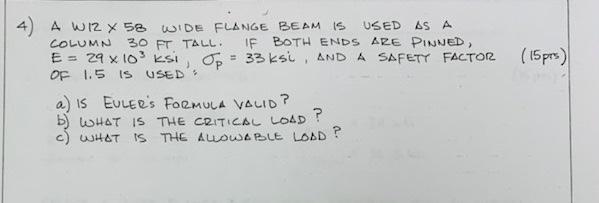 4) A W12 X 58 WIDE FLANGE BEAM IS USED AS A
COLUMN 30 FT TALL. IF BOTH ENDS ARE PINNED,
E = 29 x 10³ ksi, σp = 33 ksi, AND A SAFETY FACTOR (15 pts)
OF 1.5 IS USED:
a) IS EULER'S FORMULA VALID?
b) WHAT IS THE CRITICAL LOAD?
c) WHAT IS THE ALLOWABLE LOAD?